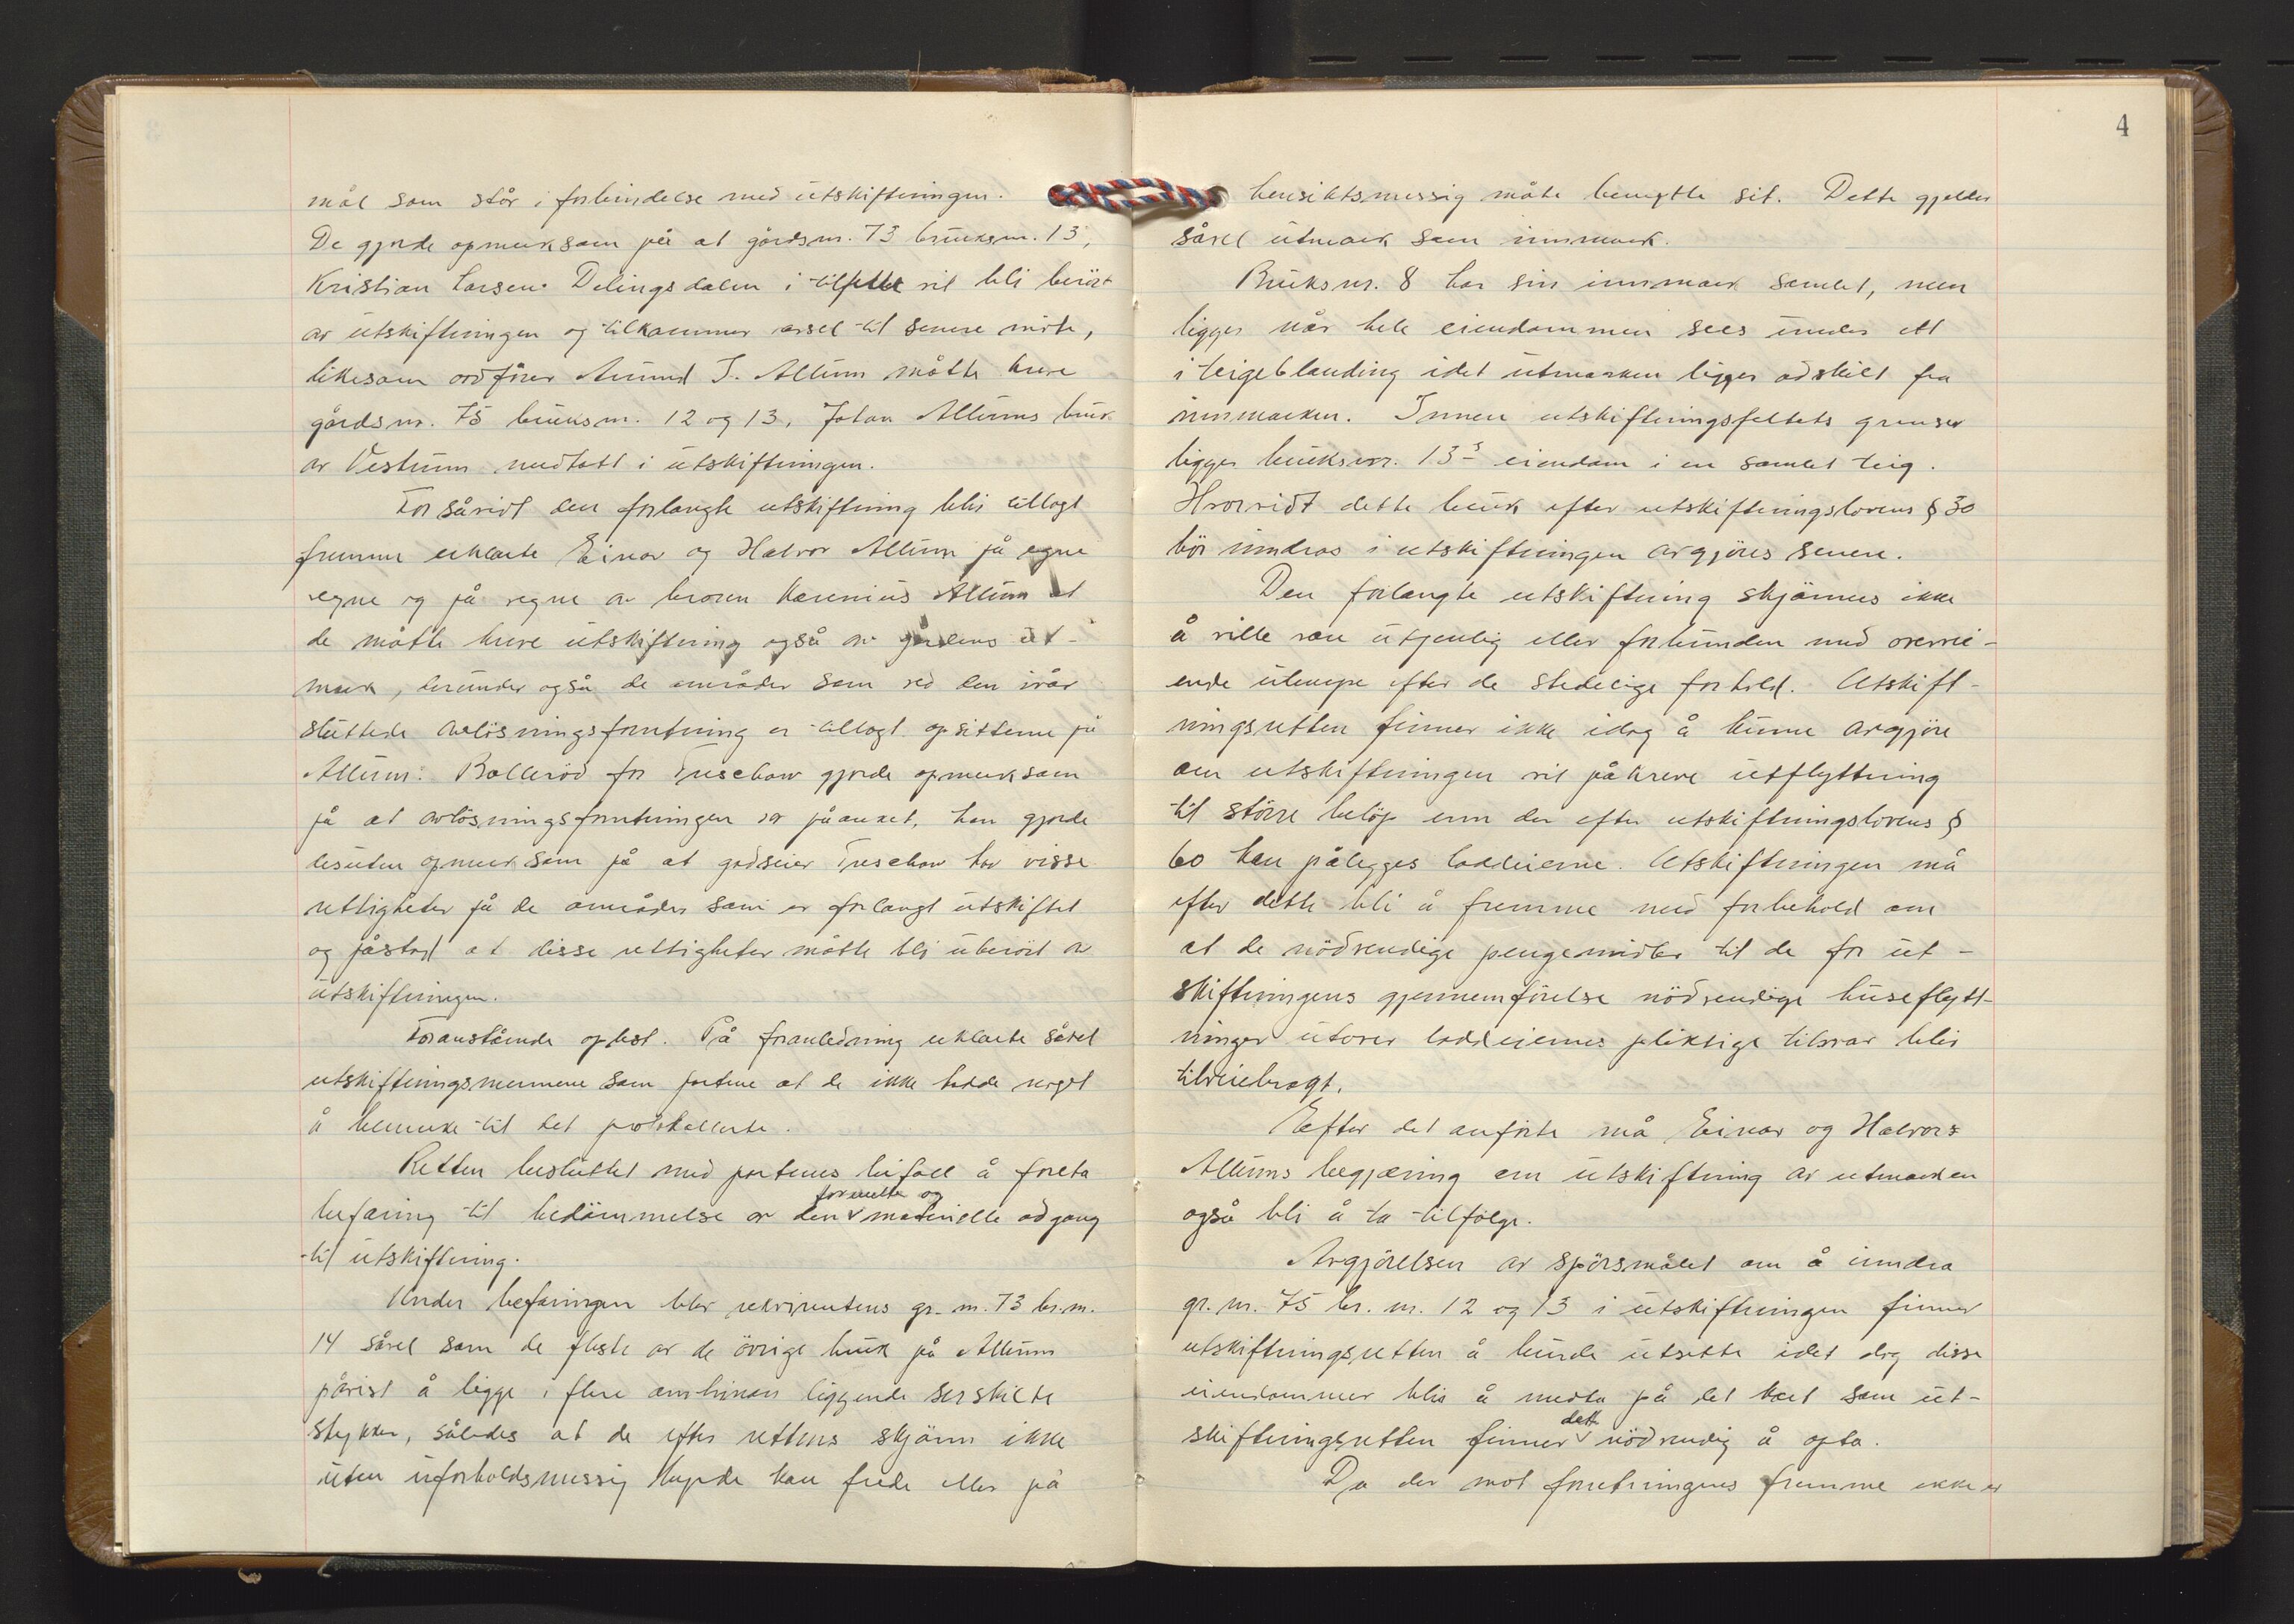 mål som står i forbindelse med utskiftningen.
De gjorde opmerksom på at gårdsnr. 73 bruksnr. 13,
Kristian Larsen Delingsdalen i tilfelle vil bli berört
av utskiftningen og tilkommer varsel til senere möte,
likesom ordförer Amund J. Allum måtte kreve
gårdsnr. 75 bruksnr. 12 og 13, Johan Allums bruk
av Vestrum medtatt i utskiftningen.
Forsåvidt den forlangte utskiftning blir tillagt
fremme erklærte Einar og Halvor Allum på egne
vegne og på vegne av broren Karenius Allum at
de måtte kreve utskiftning også av gårdens ut-
mark, derunder også de områder som ved den iår
sluttede avlösningsforretning er tillagt opsitterne på
Allum. Bolleröd for Treschow gjorde opmerksom
på at avlösningsforretningen var påanket, han gjorde
desuten opmerksom på at godseier Treschow har visse
rettigheter på de områder som er forlangt utskiftet
og påstod at disse rettigheter måtte bli uberört av
utskiftningen.
Foranstående oplest. På foranledning erklærte såvel
utskiftningsmennene som partene at de ikke hadde noget
å bemerke til det protokollerte.
Retten besluttet med partenes bifall å foreta
befaring til bedömmelse av den formelle og materielle adgang
til utskiftning.
Under befaringen blev rekvirentens gr. nr. 73 br. nr.
14 såvel som de fleste av de övrige bruk på Allum
påvist å ligge i flere omhinan liggende serskilte
stykker, således at de efter rettens skjönn ikke
uten uforholdsmessig höyde kan frede eller på
4
hensiktsmessig måte benytte sit. Dette gjelder
såvel utmark som innmark.
Bruksnr. 8 har sin innmark samlet, men
ligger når hele eiendommen sees under ett
i teigeblanding idet utmarken ligger adskilt fra
innmarken. Innen utskiftningsfeltets grenser
ligger bruksnr. 13s eiendom i en samlet teig.
Hvorvidt dette bruk efter utskiftningslovens § 30
bör inndras i utskiftningen avgjöres senere.
Den forlangte utskiftning skjönnes ikke
å ville være utjenlig eller forbunden med overvei-
ende ulempe efter de stedelige forhold. Utskift-
ningsretten finner ikke idag å kunne avgjöre
om utskiftningen vil påkreve utflyttning
til större belöp enn der efter utskiftningslovens §
60 kan pålegges loddeierne. Utskiftningen må
efter dette bli å fremme med forbehold om
at de nödvendige pengemidler til de for ut-
skiftningens gjennemförelse nödvendige huseflytt-
ninger utover loddeiernes pliktige tilsvar blir
tilveiebragt.
Efter det anförte må Einar og Halvors
Allums begjæring om utskiftning av utmarken
også bli å ta tilfölge.
Avgjörelsen av spörsmålet om å inndra
gr. nr. 75 br. nr. 12 og 13 i utskiftningen finner
utskiftningsretten å burde utsette idet dog disse
eiendommer blir å medta på det kart som ut-
skiftningsretten finner dett nödvendig å opta.
Da der mot forretningens fremme ikke er